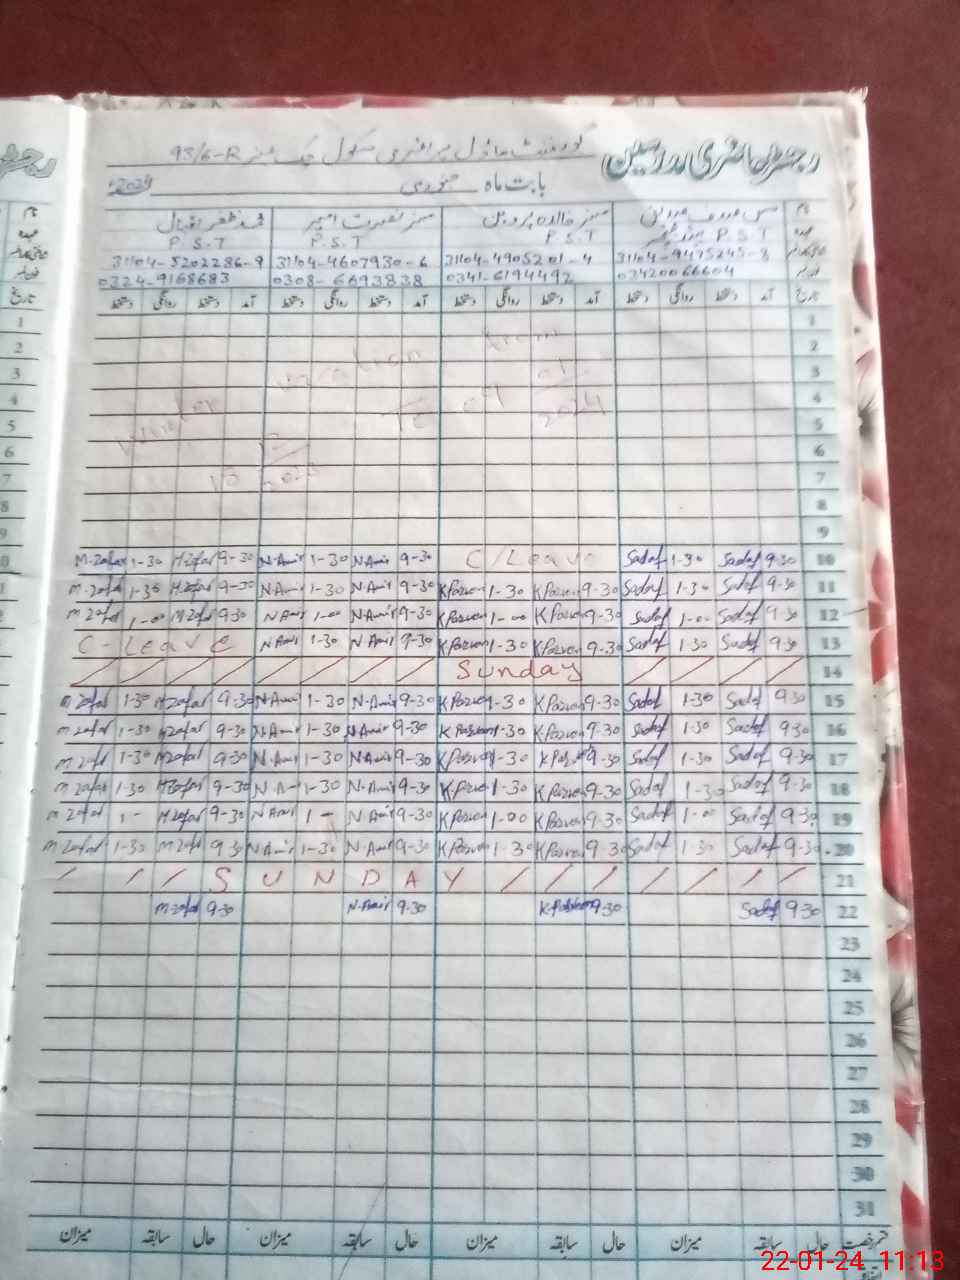 رجسٹر حاضری مدرسین
گورنمنٹ ماڈل پرائمری سکول چک نمبر 93/6-R
بابت ماہ جنوری 2024
نام مس صدف مسز خالدہ پروین مسز نصرت امیر محمد ظفر اقبال
عہدہ P.S.T P.S.T P.S.T P.S.T
31104-9475245-8 31104-4905201-4 31104-4607930-6 31104-5202286-9
03420066604 0341-6194492 0308-6693838 0324-9168683
تاریخ آمد دستخط روانگی دستخط آمد دستخط روانگی دستخط آمد دستخط روانگی دستخط آمد دستخط روانگی دستخط
1
2
3
4
5
6
7
8
9
Winter vacation from
18 12/2023 To 09 01/2024
10 9-30 Sadaf 1-30 Sadaf C/Leave 9-30 N Amir 1-30 N-Amir 9-30 M zafar 1-30 M-zafar
11 9-30 Sadaf 1-30 Sadaf 9-30 K Parveen 1-30 K Parveen 9-30 N Amir 1-30 N Amir 9-30 M zafar 1-30 M-zafar
12 9-30 Sadaf 1-00 Sadaf 9-30 K Parveen 1-00 K Parveen 9-30 N Amir 1-00 N Amir 9-30 M zafar 1-00 M zafar
13 9-30 Sadaf 1-30 Sadaf 9-30 K Parveen 1-30 K Parveen 9-30 N Amir 1-30 N Amir C-Leave
14 Sunday
15 9-30 Sadaf 1-30 Sadaf 9-30 K Parveen 1-30 K Parveen 9-30 N-Amir 1-30 N-Amir 9-30 M zafar 1-30 M zafar
16 9-30 Sadaf 1-30 Sadaf 9-30 K Parveen 1-30 K Parveen 9-30 N Amir 1-30 N-Amir 9-30 M zafar 1-30 M-zafar
17 9-30 Sadaf 1-30 Sadaf 9-30 K Parveen 1-30 K Parveen 9-30 N Amir 1-30 N-Amir 9-30 M zafar 1-30 M zafar
18 9-30 Sadaf 1-30 Sadaf 9-30 K Parveen 1-30 K-Parveen 9-30 N-Amir 1-30 N-A 9-30 M zafar 1-30 M zafar
19 9-30 Sadaf 1-00 Sadaf 9-30 K Parveen 1-00 K Parveen 9-30 N Amir 1- N Amir 9-30 M zafar 1- M zafar
20 9-30 Sadaf 1-30 Sadaf 9-30 K Parveen 1-30 K Parveen 9-30 N-Amir 1-30 N Amir 9-30 M zafar 1-30 M zafar
21 SUNDAY
22 9-30 Sadaf 9-30 K-Parveen 9-30 N-Amir 9-30 M-zafar
23
24
25
26
27
28
29
30
31
قسم رخصت حال سابقہ میزان حال سابقہ میزان حال سابقہ میزان حال سابقہ میزان
22-01-24 11:13